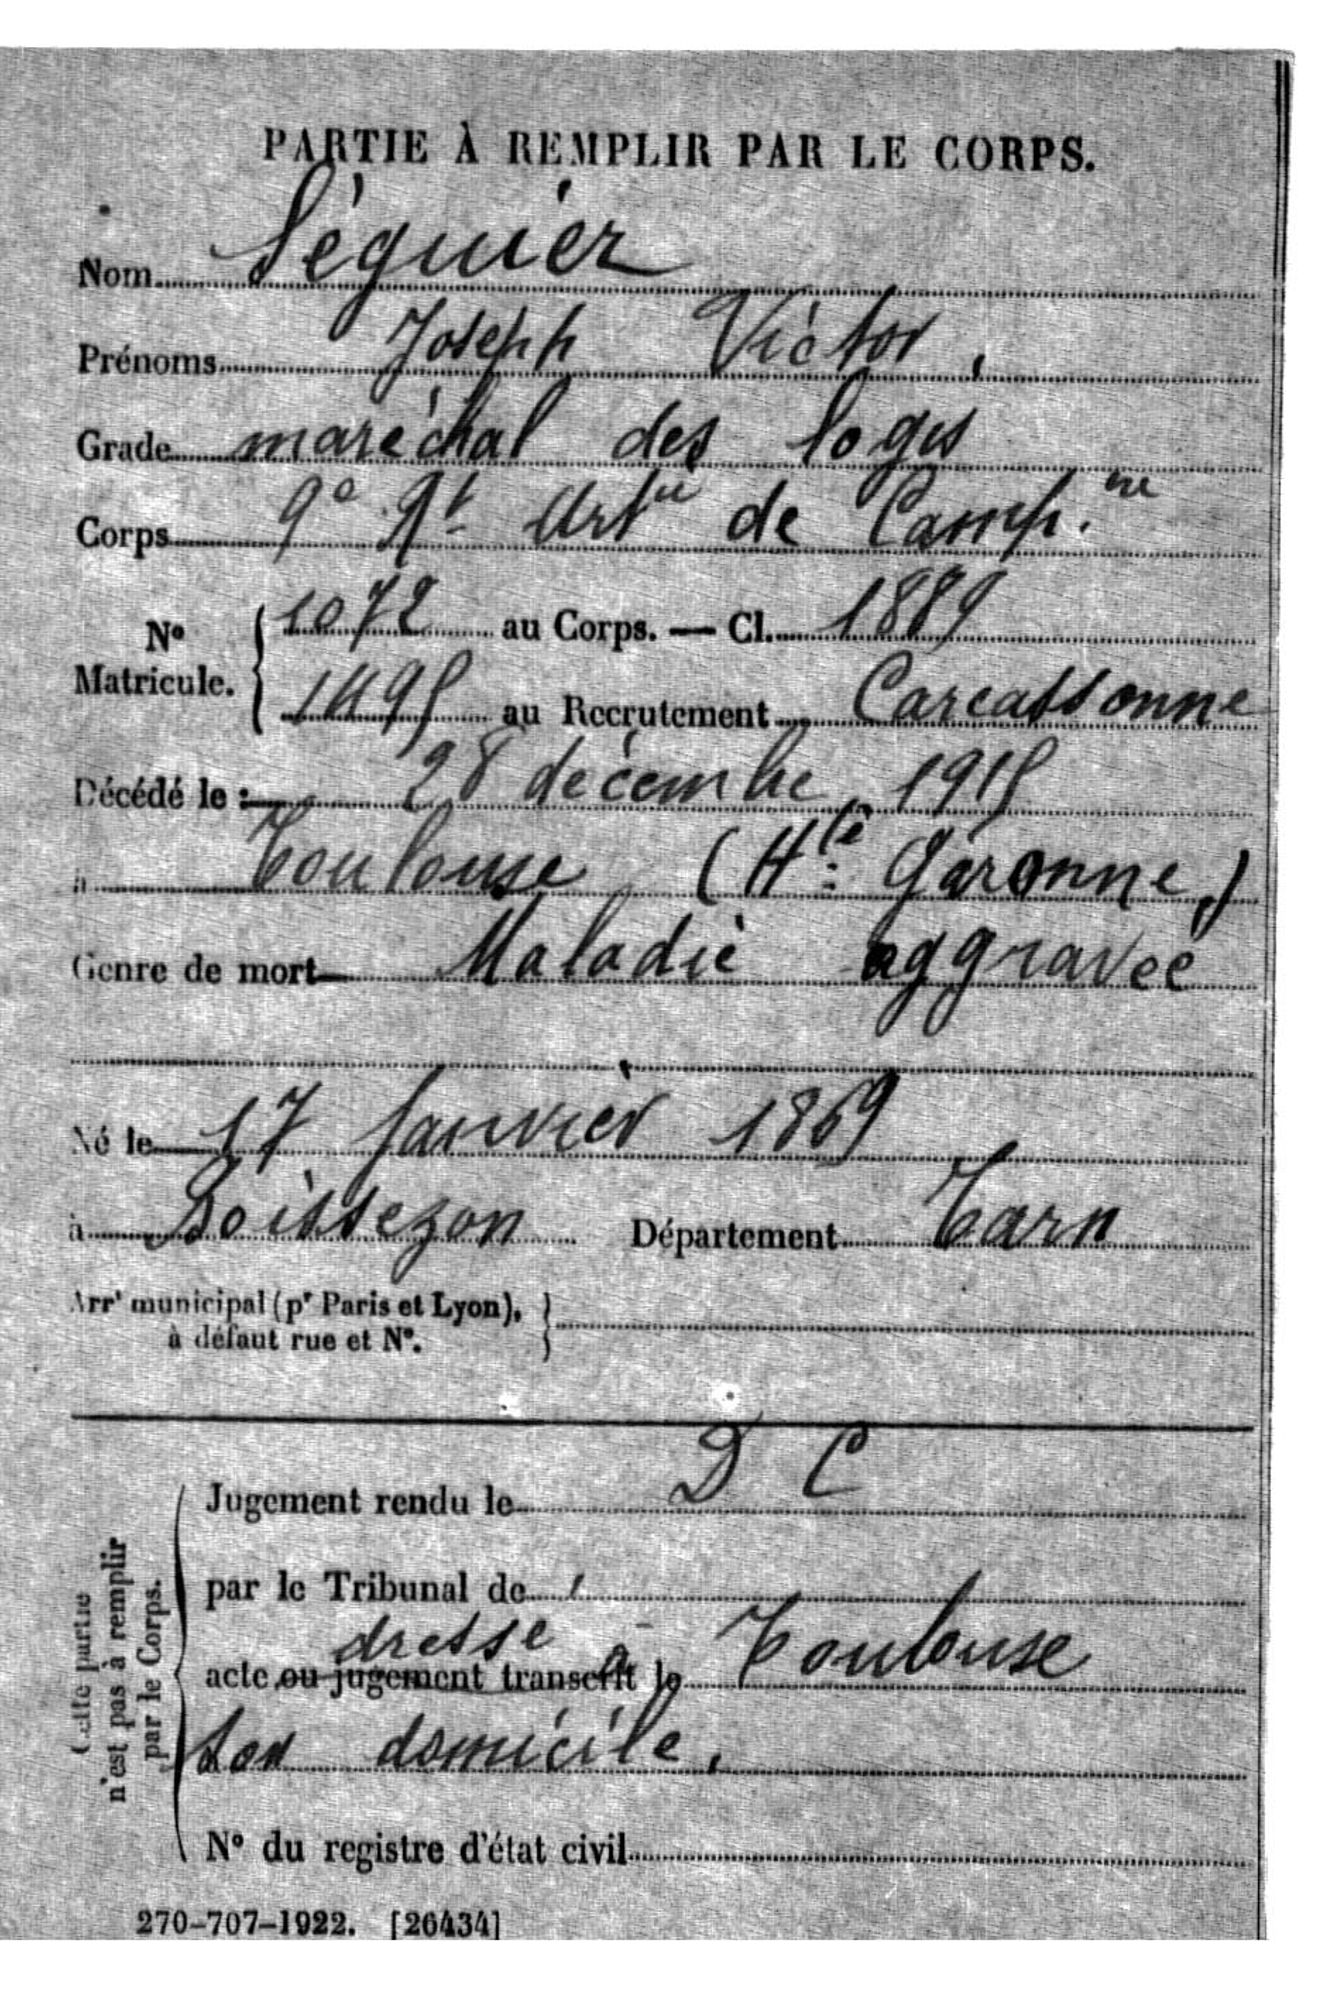 PARTIE À REMPLIR PAR LE CORPS.
Nom Séguier
Prénoms Joseph Victor,
Grade maréchal des logis
Corps 9e Rt Artie de Camp.ne
No Matricule. 1072 au Corps. — Cl. 1889
1495 au Recrutement Carcassonne
Décédé le : 28 décembre 1915
à Toulouse (Hte Garonne)
Genre de mort Maladie aggravée
Né le 17 Janvier 1869
à Boissezon Département Tarn
Arrt municipal (pr Paris et Lyon),
à défaut rue et No.
D C
Jugement rendu le
par le Tribunal de
dressé à Toulouse
acte ou jugement transcrit le
son domicile.
No du registre d'état civil
Cette partie
n'est pas à remplir
par le Corps.
270-707-1922. [26434]